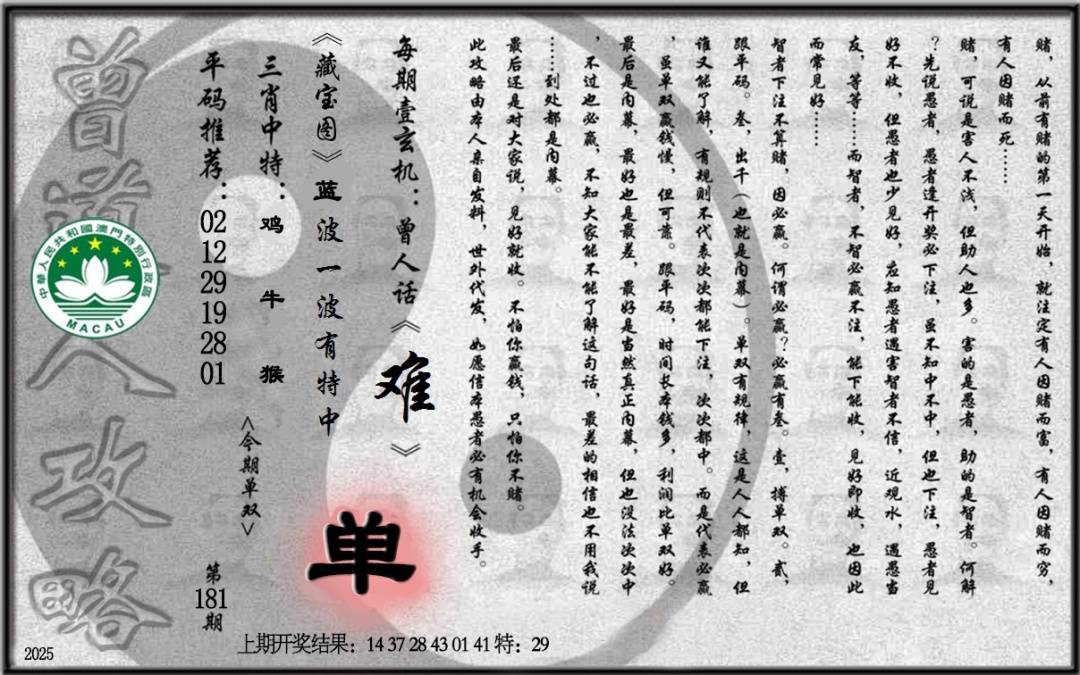 赌，从前有赌的第一天开始，就注定有人因赌而富，有人因赌而穷，
有人因赌而死……
赌，可说是害人不浅，但助人也多。害的是愚者，助的是智者。何解
？先说愚者，愚者逢开奖必下注，虽不知中不中，但也下注，愚者见
好不收，但愚者也少见好，应知愚者遇害智者不信，近观水，遇愚当
友，等等……而智者，不智必赢不注，能下能收，见好即收，也因此
而常见好……
智者下注不算赌，因必赢。何谓必赢？必赢有叁。壹，搏单双。贰，
跟平码。叁，出千（也就是内幕）。单双有规律，这是人人都知，但
谁又能了解，有规则不代表次次都能下注，次次都中。而是代表必赢
，虽单双赢钱慢，但可靠。跟平码，时间长本钱多，利润比单双好。
最后是内幕，最好也是最差，最好是当然真正内幕，但也没法次次中
，不过也必赢，不知大家能不能了解这句话，最差的相信也不用我说
……到处都是内幕。
最后还是对大家说，见好就收。不怕你赢钱，只怕你不赌。
此攻略由本人亲自发料，世外代发，如愿信本愚者必有机会收手。
每期壹玄机：曾人话《难》
《藏宝图》蓝波一波有特中
单
三肖中特：鸡 牛 猴
<今期单双>
平码推荐：02 12 29 19 28 01
第181期
曾道人攻略
中華人民共和國澳門特別行政區
MACAU
上期开奖结果：14 37 28 43 01 41 特：29
2025